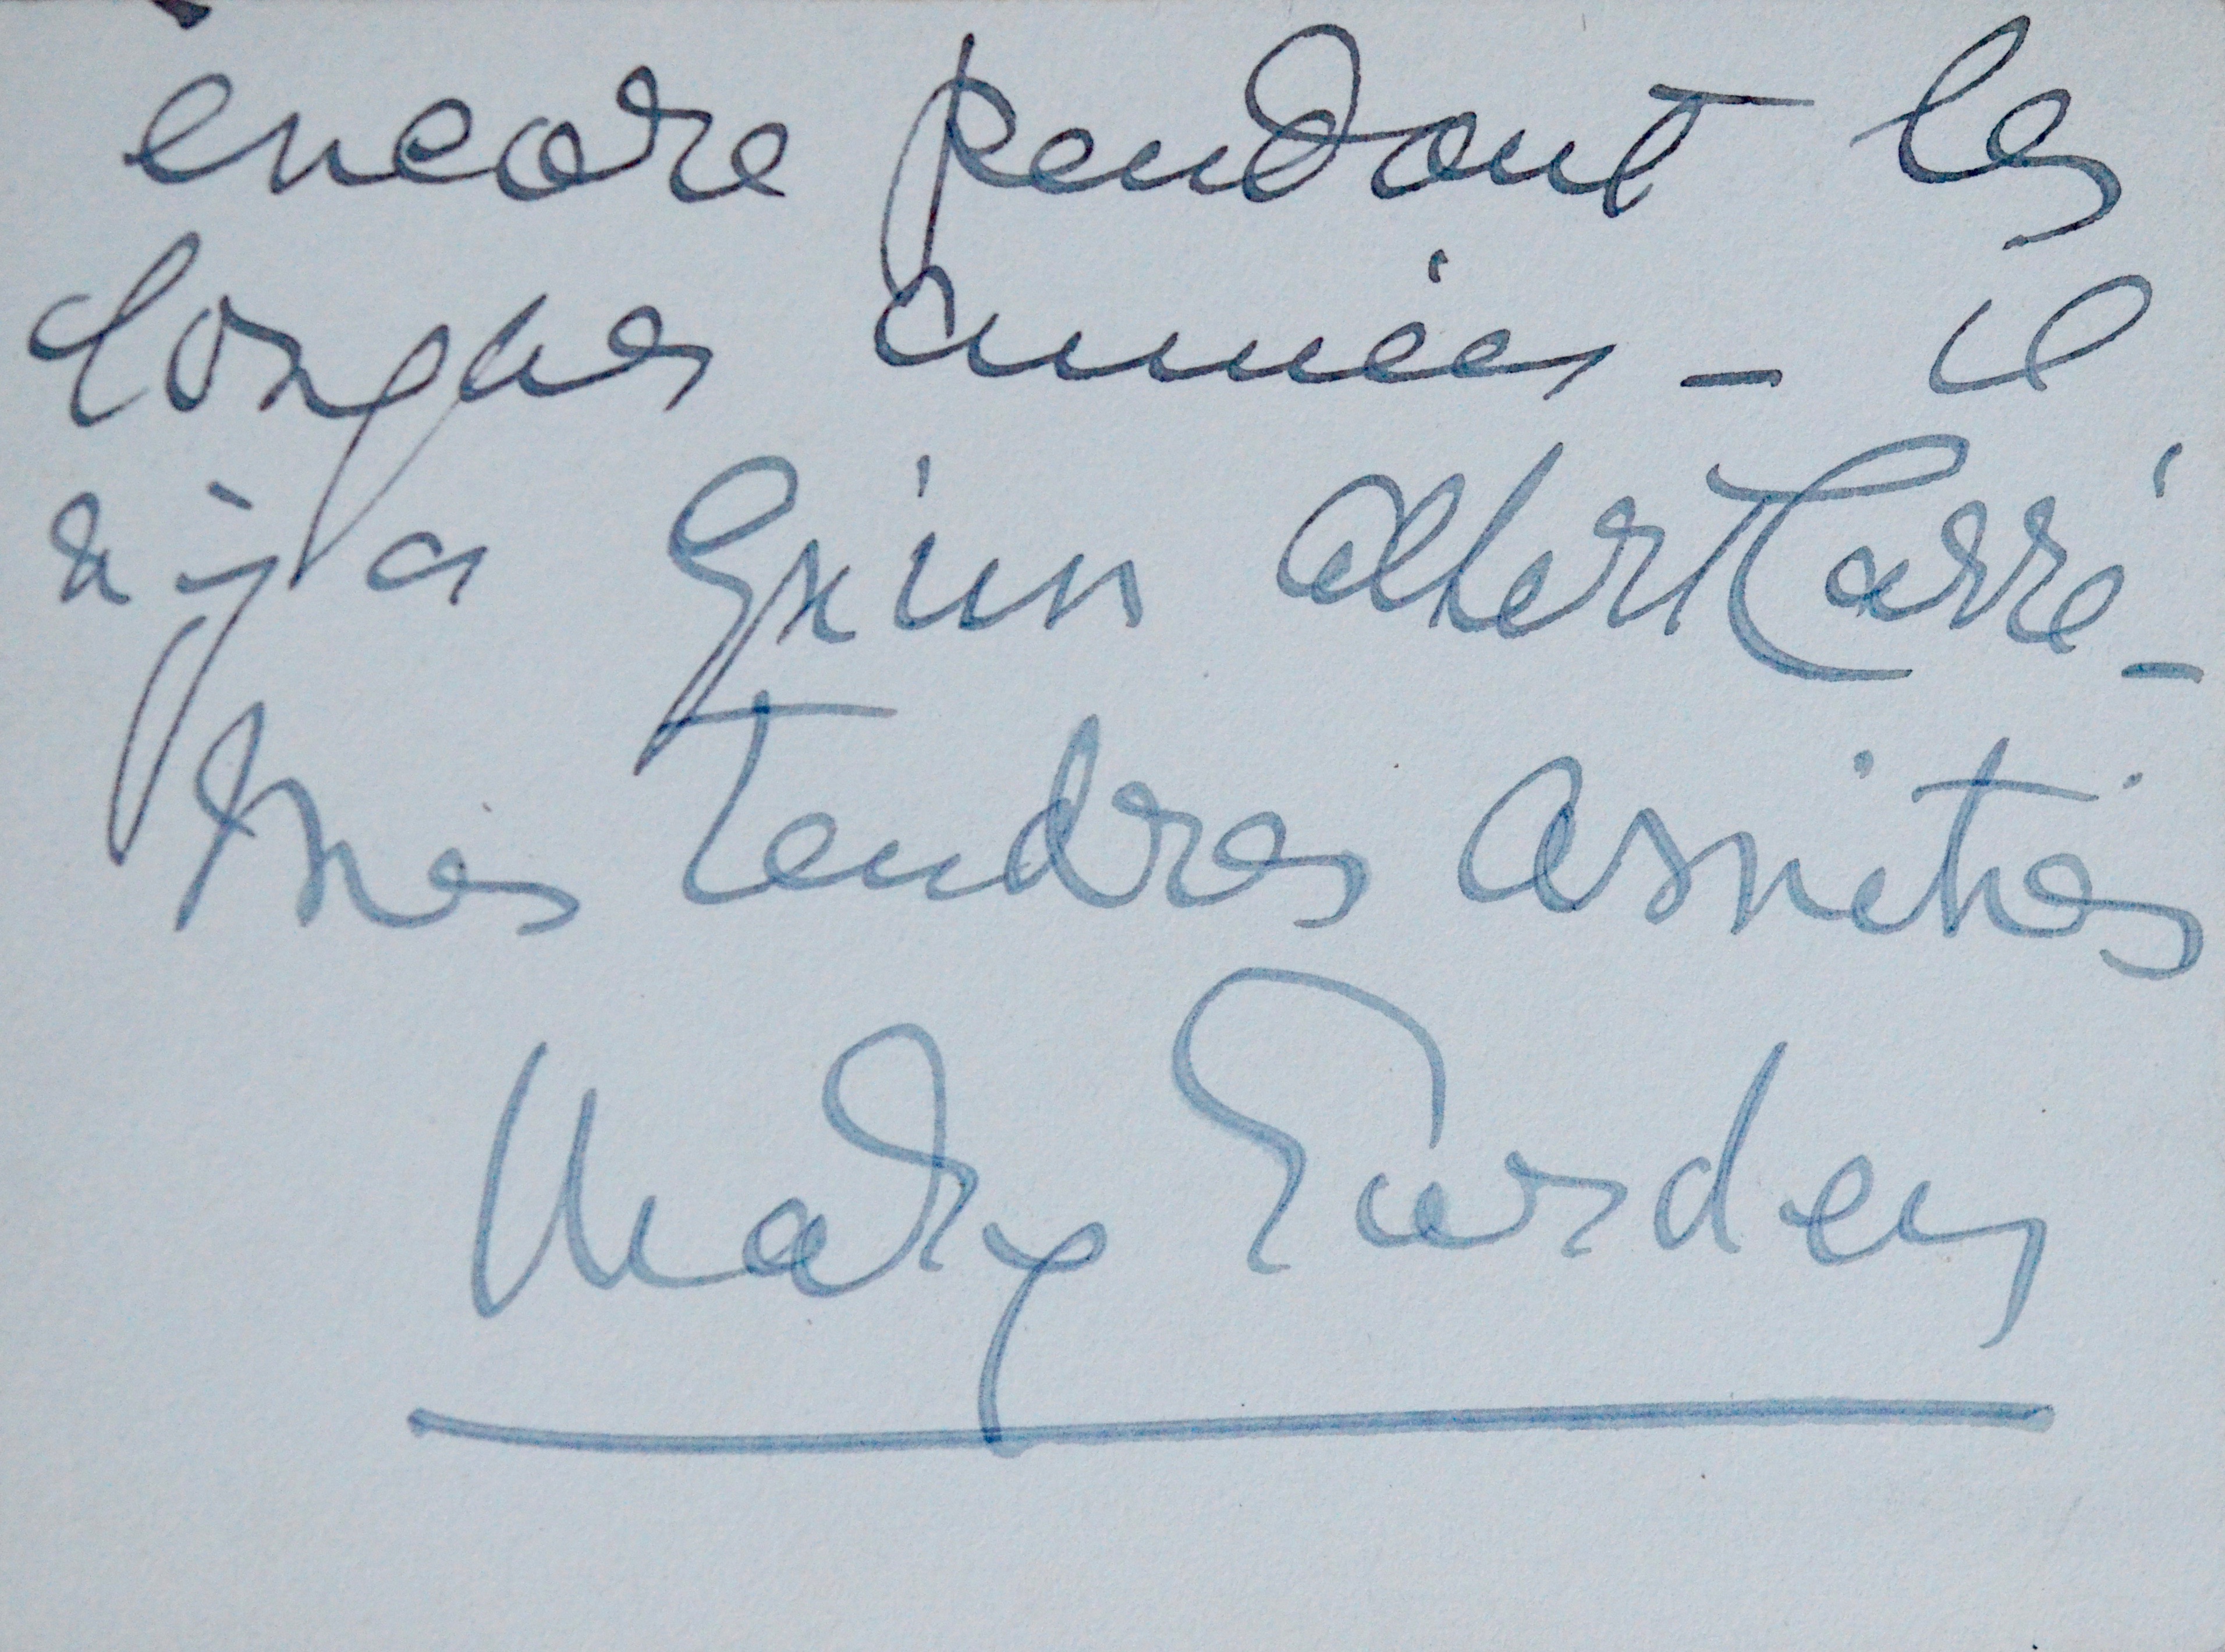 encore pendant les
longues années - il
n'y a qu'un Albert Carré -
mes tendres amitiés
Mary Garden